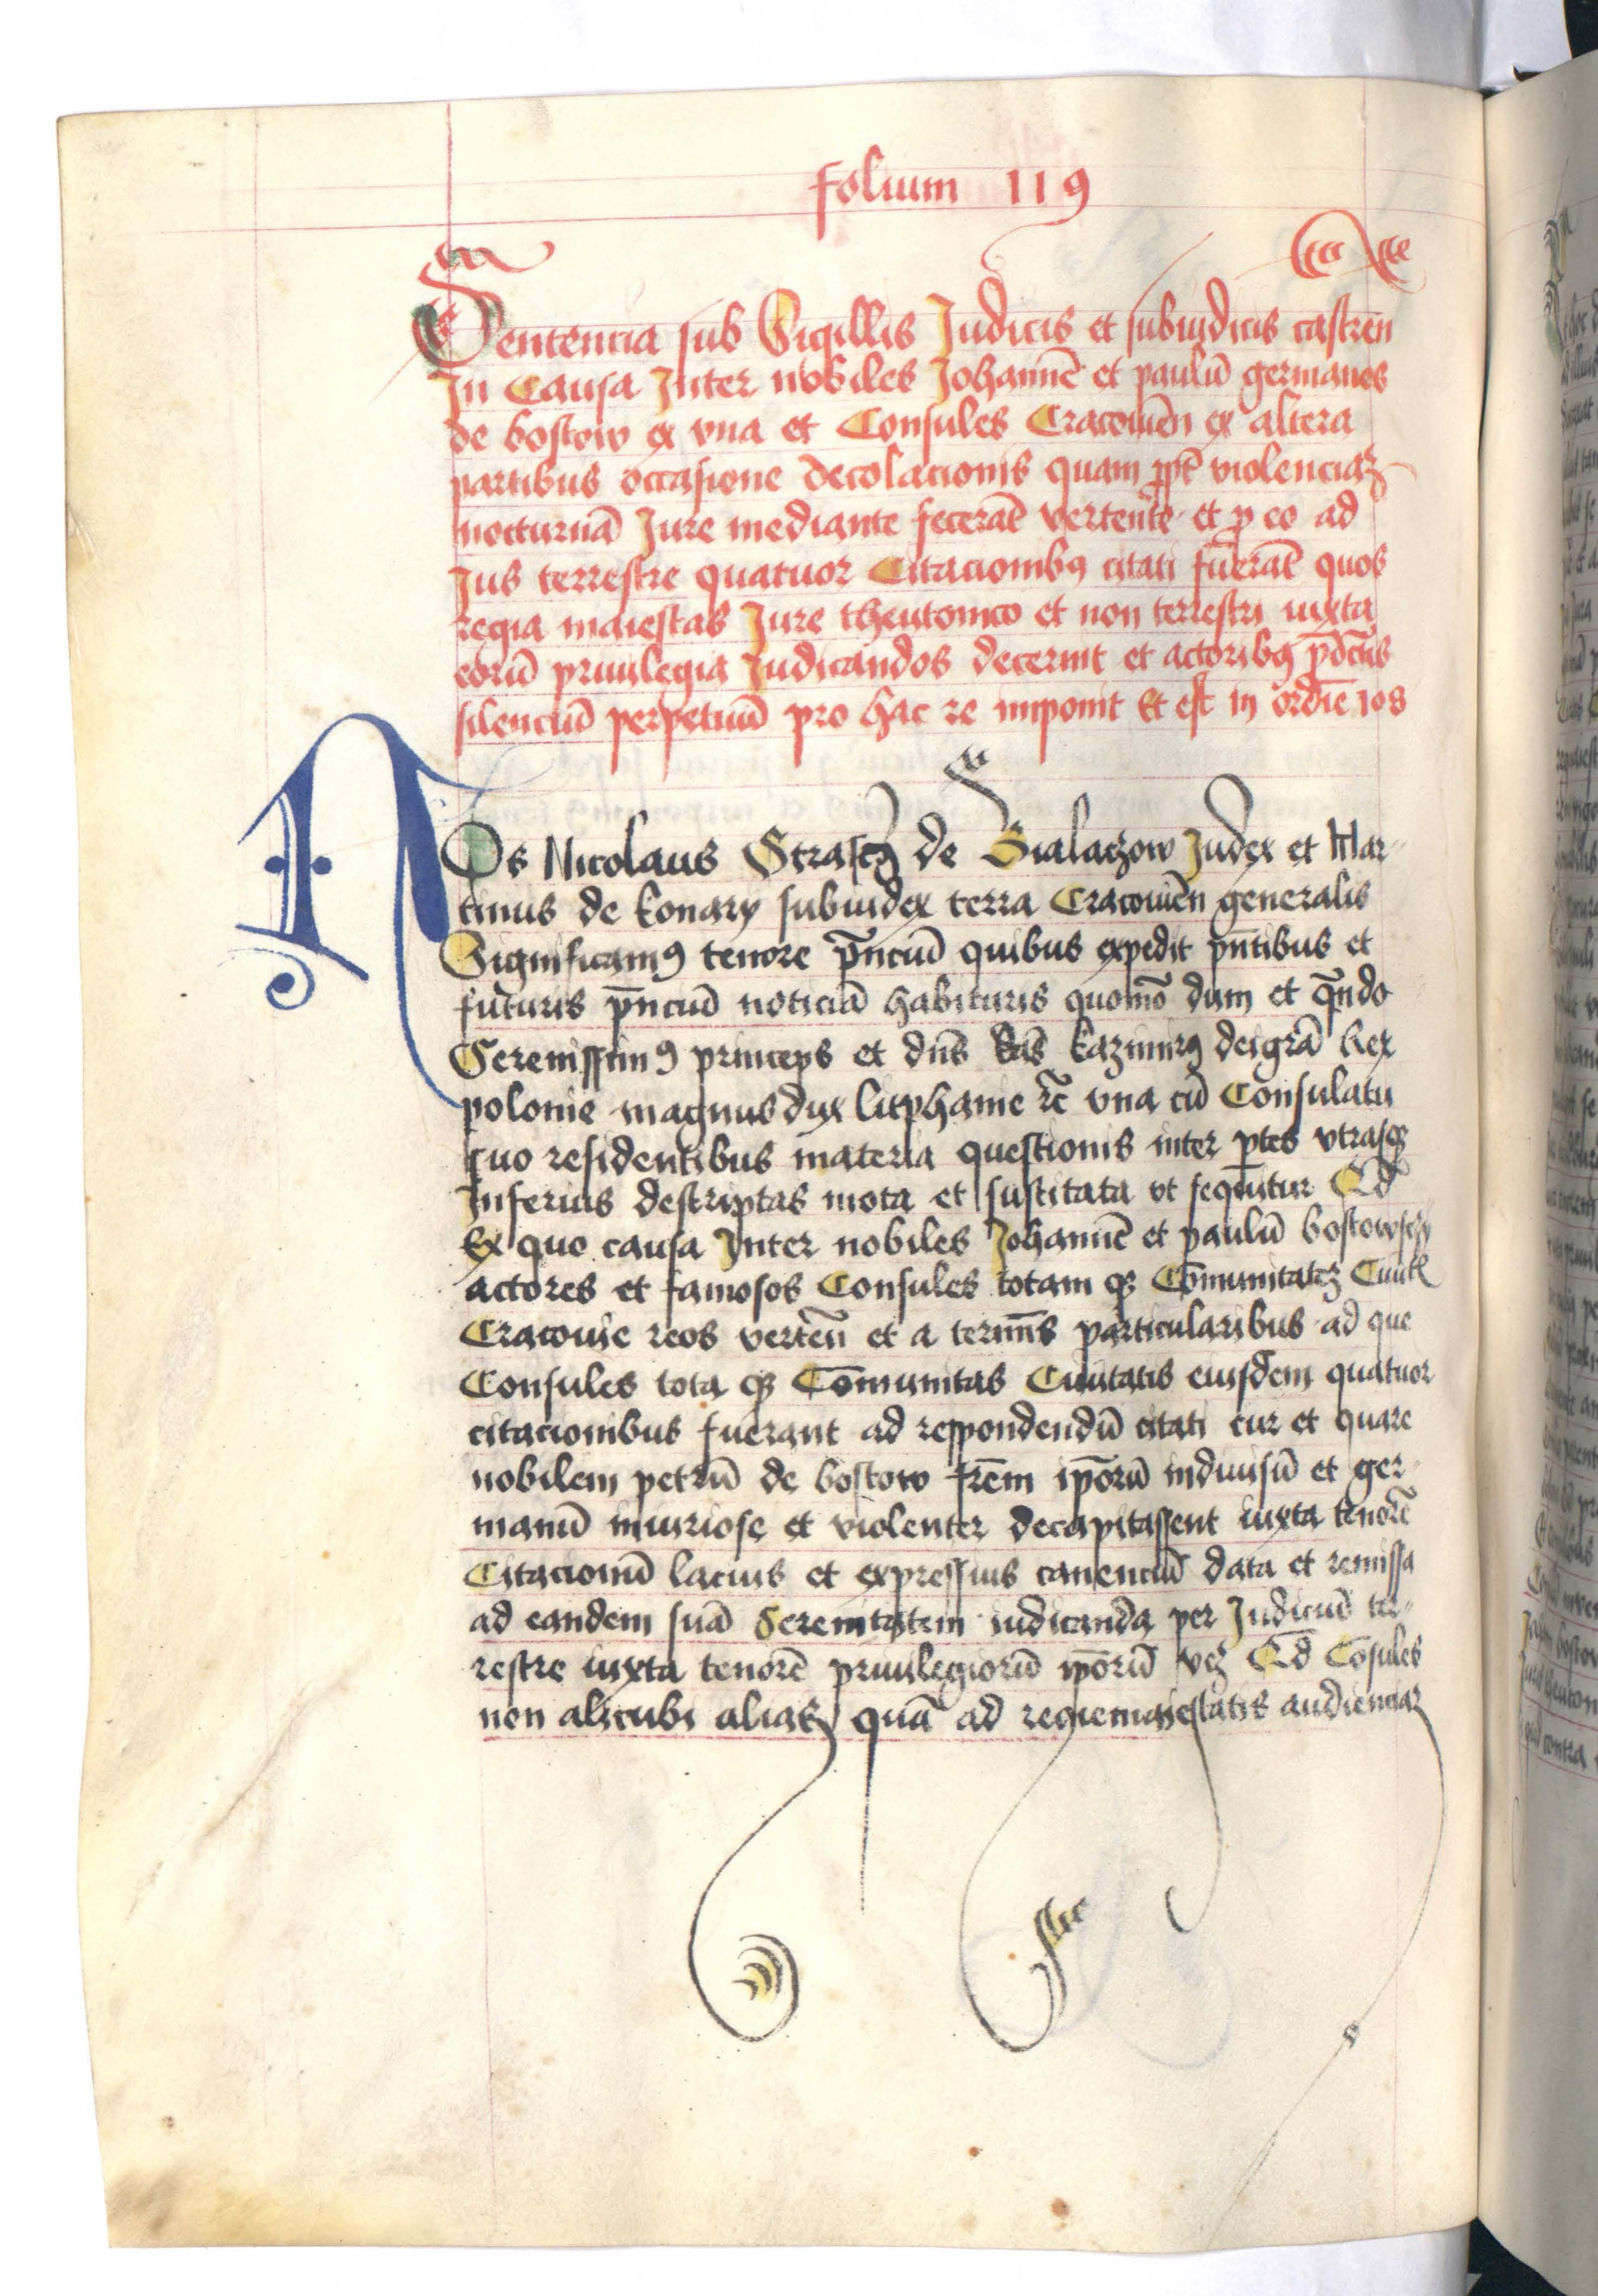 folium 119
Sentencia sub Sigillis Judicis et subiudicis castren̄
In Causa Inter nobiles Johannē et paulū germanos
de bostow ex vna et Consules Cracouien̄ ex altera
partibus occasione decolacionis quam ꝓpt̄ violenciaꝫ
nocturnā Jure mediante fecerāt vertente et ꝓ eo ad
Jus terrestre quatuor Citacionibꝯ citati fuerāt quos
regia maiestas Jure theutonico et non terrestri iuxta
eorū priuilegia Judicandos decernit et actoribꝯ p̄dc̄is
silenciū perpetuū pro hac re imponit Et est in ordīe 108
NOs Nicolaus Strascꝫ de Bialaczow Judex et Mar-
tinus de konary subiudex terra Cracouien̄ generalis
Significamꝯ tenore p̄nciū quibus expedit pn̄tibus et
futuris p̄nciū noticiā habituris quomō dum et qn̄do
Serenissimꝯ princeps et dn̄s kazimirꝯ dei grā Rex
polonie magnus dux litphanie ꝛc̄ vna cū Consulatu
suo residentibus materia questionis inter ptes vtrasqꝫ
Inferius descriptas mota et suscitata vt sequūtur Qd̄
Ex quo causa Inter nobiles Johannē et paulū bostowsczy
actores et famosos Consules totam qꝫ Cōmunitateꝫ Ciuit̄
Cracouie reos verten̄ et a termīs particularibus ad que
Consules tota qꝫ Cōmunitas Ciuitatis eiusdem quatuor
citacionibus fuerant ad respondendū citati cur et quare
nobilem petrū de bostow frēm ipōrū indiuisū et ger-
manū iniuriose et violenter decapitassent iuxta tenorē
Citacionū lacius et expressius canenciū data et remissa
ad eandem suā Serenitatem iudicanda per Judiciū ter-
restre iuxta tenorē priuilegiorū ipōrū veꝫ Qd̄ Cōsules
non alicubi alias quā ad regiemaiestatis audienciaꝫ